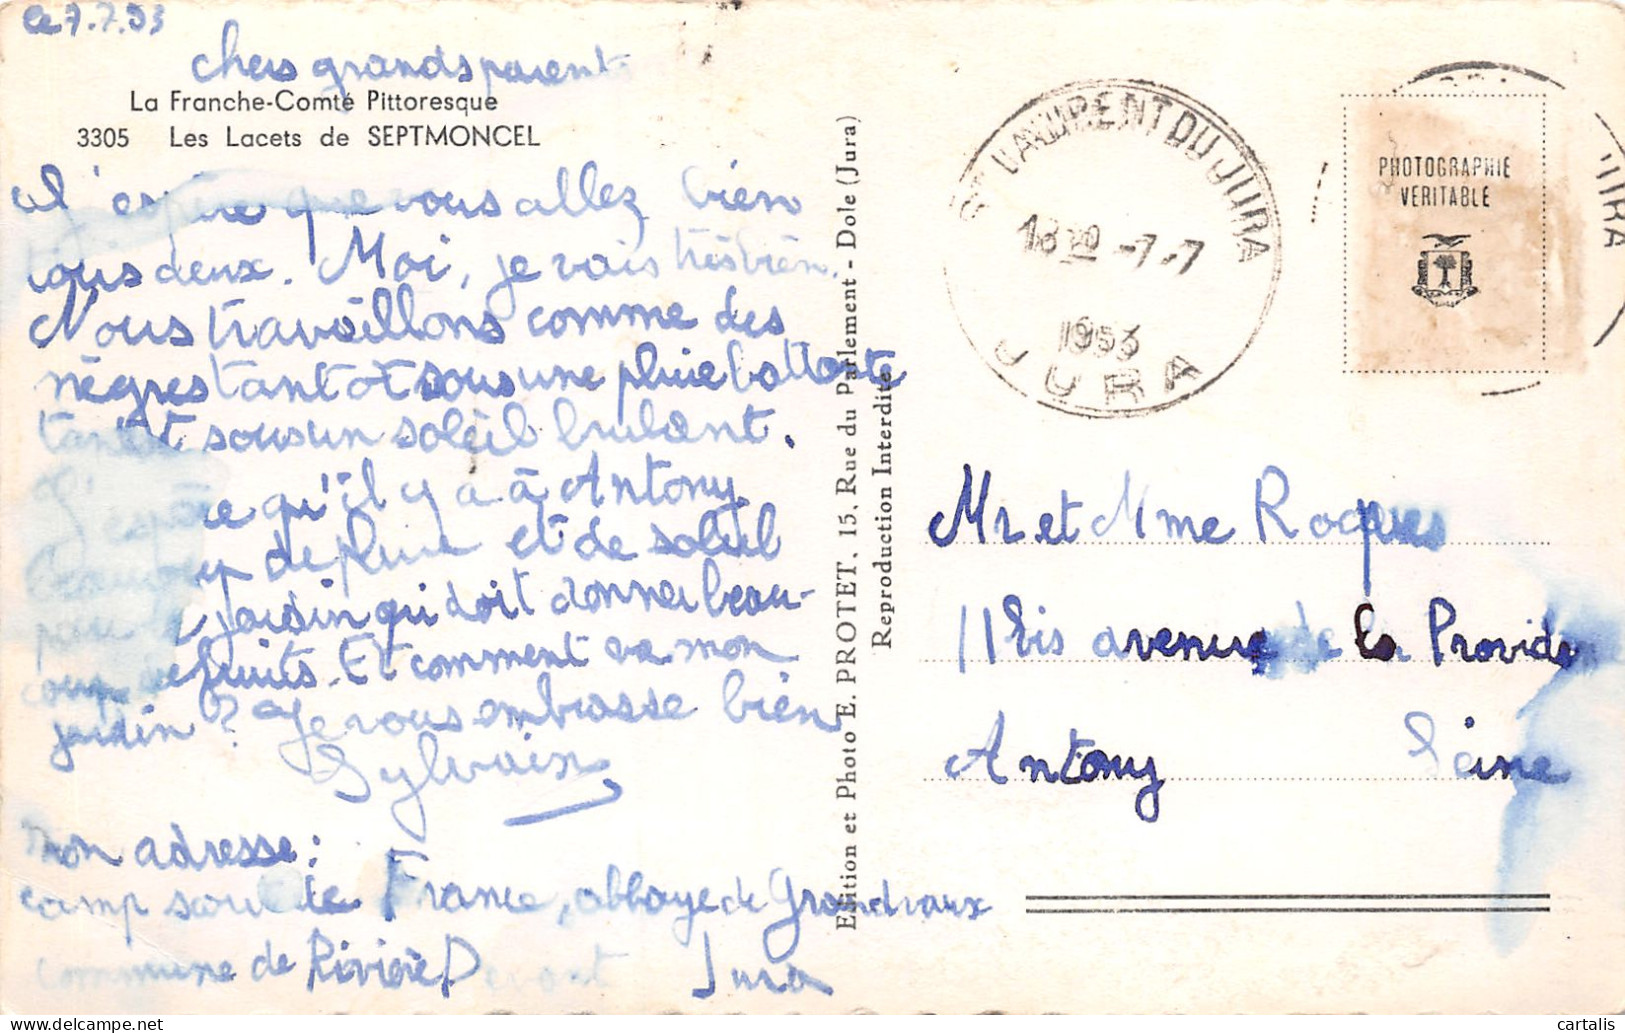 le 7.7.53
chers grandsparents
La Franche-Comté Pittoresque
3305 Les Lacets de SEPTMONCEL
J'espère que vous allez bien
tous deux. Moi, je vais très bien.
Nous travaillons comme des
nègres tantôt sous une pluie battante
tantôt sous un soleil brulant.
J'espère qu'il y a à Antony
beaucoup de pluie et de soleil
pour le jardin qui doit donner beau-
coup de fruits. Et comment va mon
jardin ? Je vous embrasse bien
Sylvain
mon adresse :
camp scout de France, abbaye de Grandvaux
commune de Rivière Devant Jura
Edition et Photo E. PROTET, 15, Rue du Parlement - Dole (Jura)
Reproduction Interdite
ST LAURENT DU JURA
18H -7-7
1953
JURA
PHOTOGRAPHIE
VERITABLE
JURA
Mr et Mme Roques
11 bis avenue de la Providence
Antony Seine
cartalis